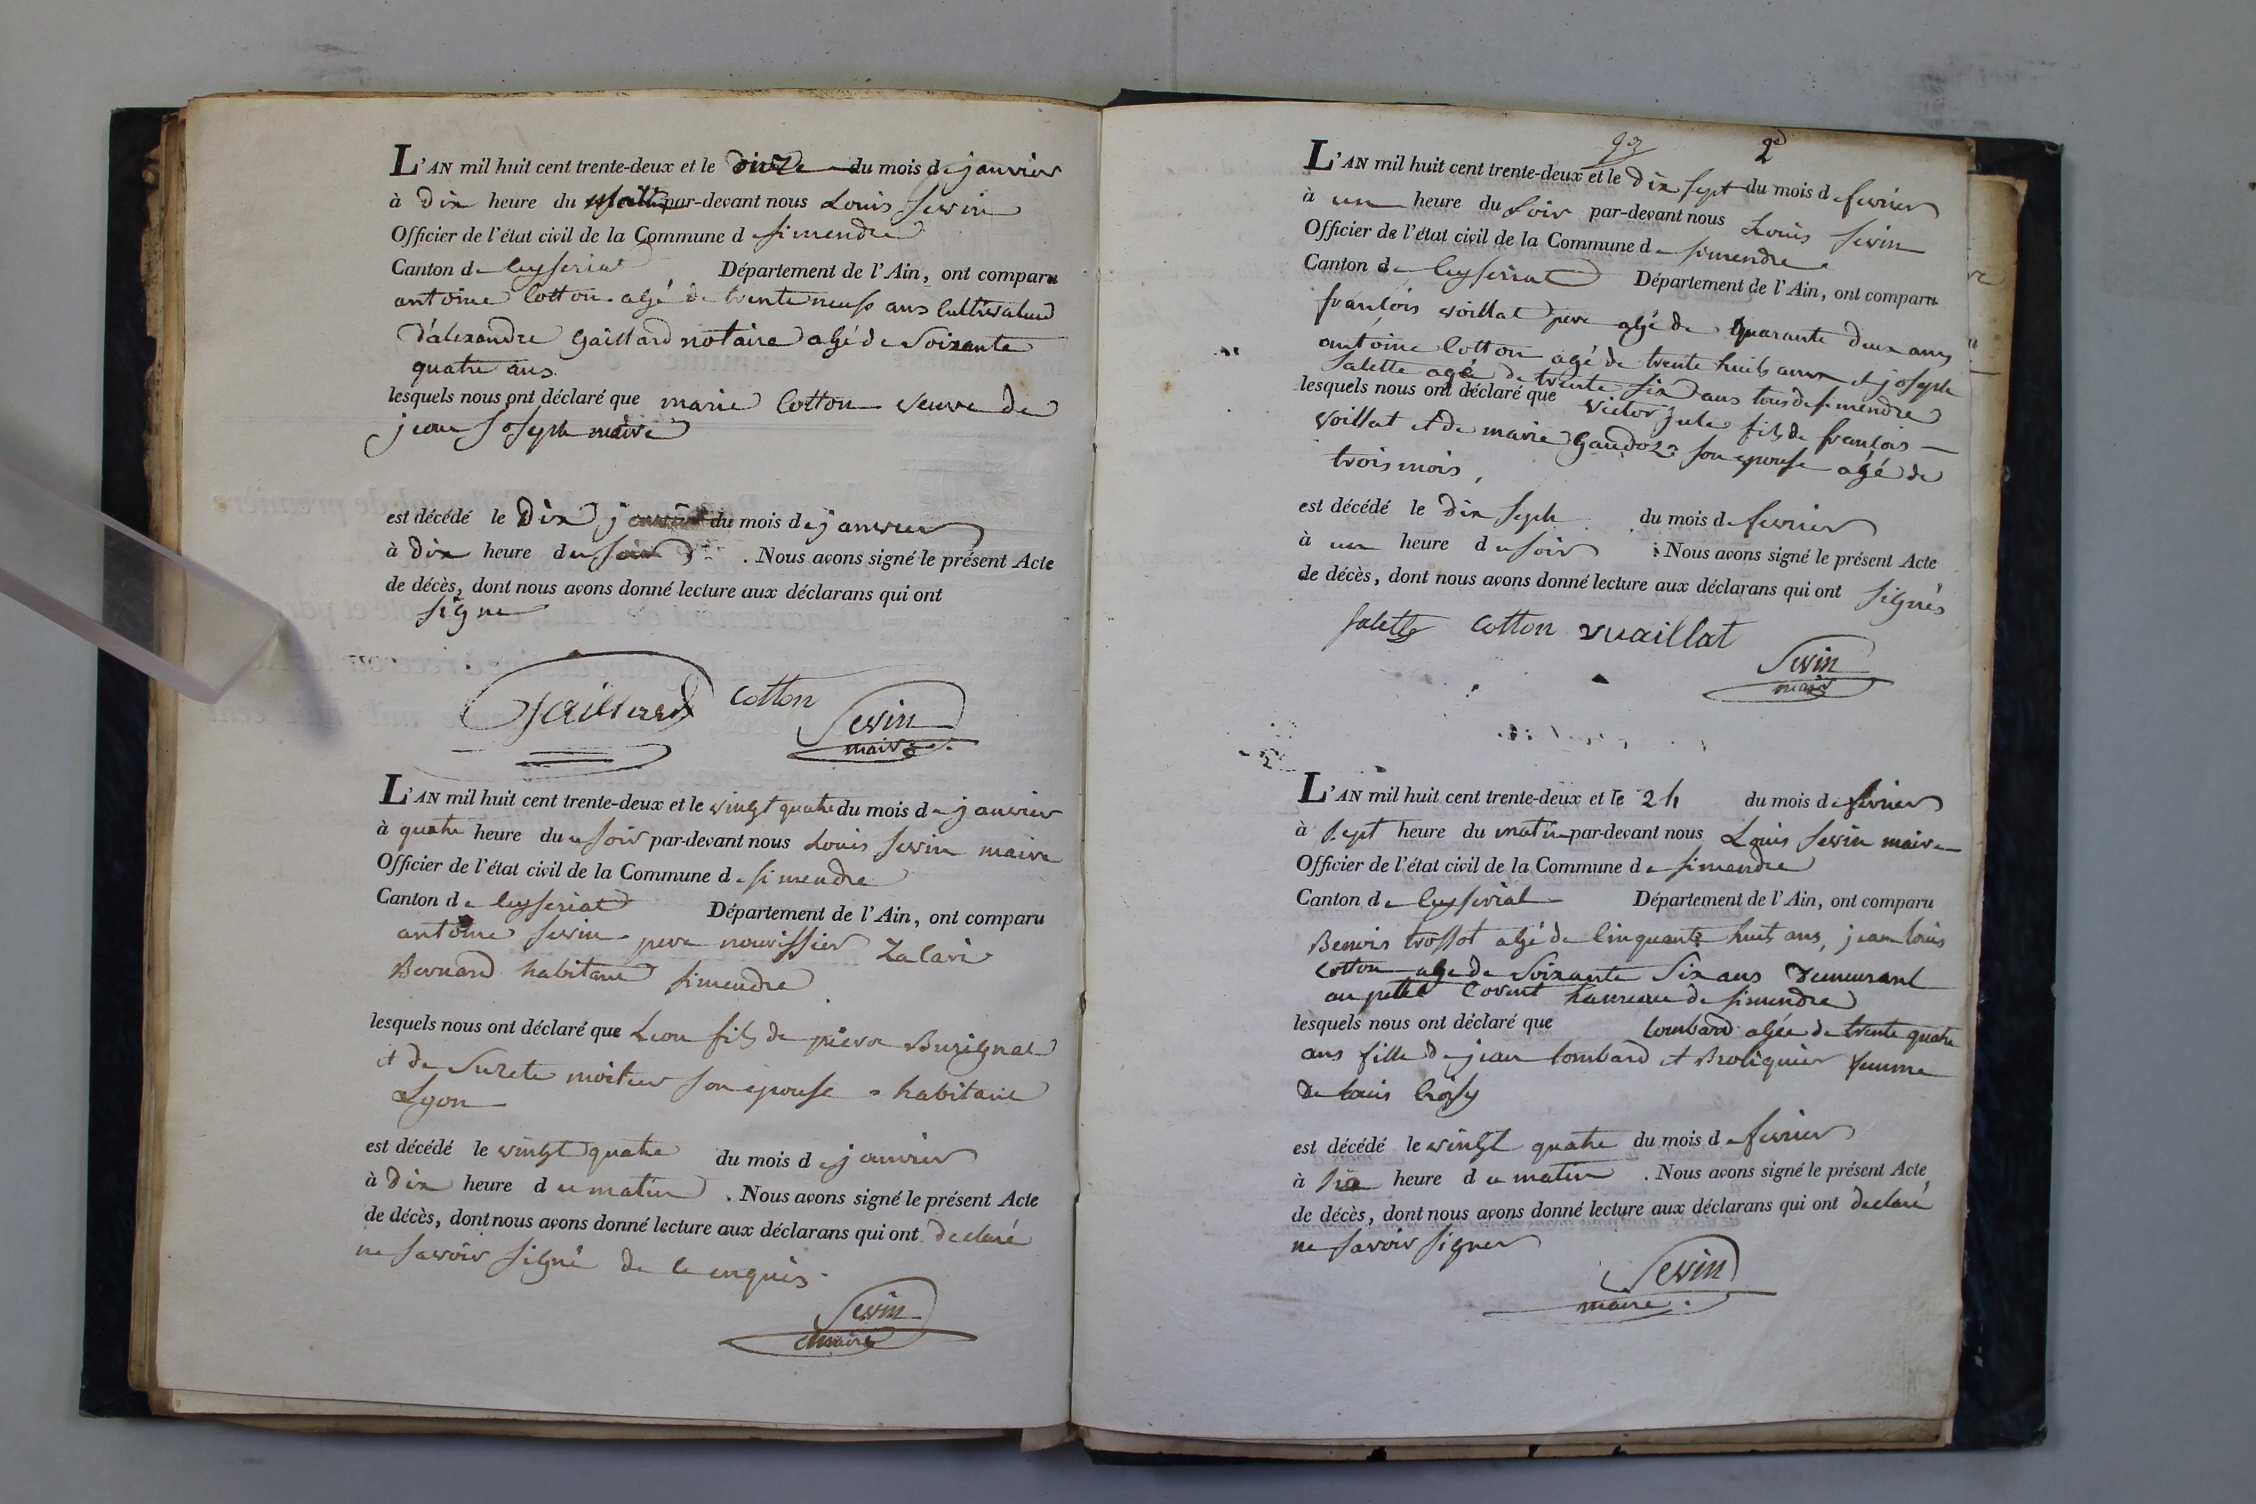 L'AN mil huit cent trente-deux et le onze du mois de janvier
à dix heure du matin par-devant nous Louis Sevin
Officier de l'état civil de la Commune d simendre
Canton de Ceyseriat Département de l'Ain, ont comparu
antoine Cotton agé de trente neuf ans Cultivateur
d'alexandre Gaillard notaire agé de Soixante
quatre ans
lesquels nous ont déclaré que marie Cotton veuve de
jean Joseph maire
est décédé le Dix du mois de janvier
à dix heure du soir . Nous avons signé le présent Acte
de décès, dont nous avons donné lecture aux déclarans qui ont
signe
Gaillard Cotton Sevin
maire
L'AN mil huit cent trente-deux et le vingt quatre du mois de janvier
à quatre heure du soir par-devant nous Louis Sevin maire
Officier de l'état civil de la Commune de simendre
Canton de Ceyseriat Département de l'Ain, ont comparu
antoine Sevin pere nourissier
Bernard habitant simendre
lesquels nous ont déclaré que Leon fils de pierre Burignat
et de Surete son epouse habitant
Lyon
est décédé le vingt quatre du mois de janvier
à Dix heure du matin . Nous avons signé le présent Acte
de décès, dont nous avons donné lecture aux déclarans qui ont declaré
ne savoir signé de ce enquis
Sevin
maire
93 2e
L'AN mil huit cent trente-deux et le dix sept du mois de fevrier
à un heure du Soir par-devant nous Louis Sevin
Officier de l'état civil de la Commune de simendre
Canton de Ceyseriat Département de l'Ain, ont comparu
françois voillat pere agé de quarante deux ans
antoine Cotton agé de trente huit ans et joseph
Salette agé de trente six ans tous de simendre
lesquels nous ont déclaré que victor Jule fils de françois
voillat et de marie son epouse agé de
trois mois,
est décédé le dix sept du mois de fevrier
à un heure du soir . Nous avons signé le présent Acte
de décès, dont nous avons donné lecture aux déclarans qui ont signés
Salette Cotton vuaillat
Sevin
maire
L'AN mil huit cent trente-deux et le 24 du mois de fevrier
à sept heure du matin par-devant nous Louis Sevin maire
Officier de l'état civil de la Commune de simendre
Canton de Ceyseriat Département de l'Ain, ont comparu
Benois trossot agé de Cinquante huit ans, jean louis
Cotton age de Soixante Six ans Demeurant
au petit Corent hameau de simendre
lesquels nous ont déclaré que Lombard agée de trente quatre
ans fille de jean Lombard et Broliquier femme
De Louis
est décédé le vingt quatre du mois de fevrier
à heure du matin . Nous avons signé le présent Acte
de décès, dont nous avons donné lecture aux déclarans qui ont declaré
ne savoir signer
Sevin
maire